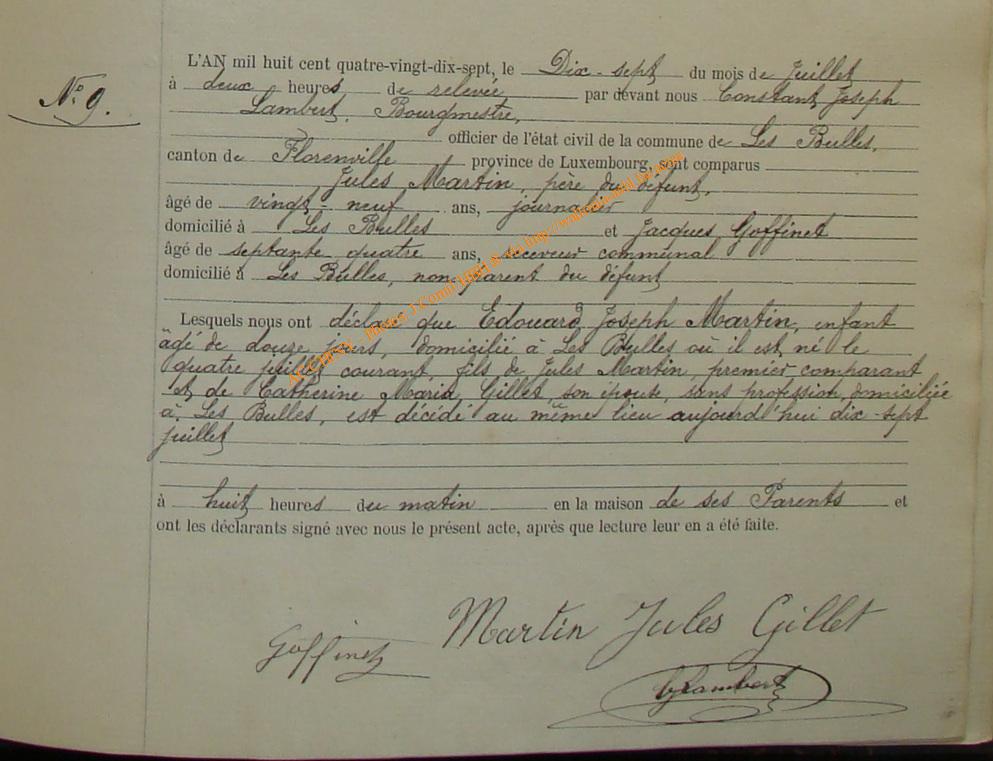 N° 9.
L'AN mil huit cent quatre-vingt-dix-sept, le Dix-sept du mois de Juillet
à deux heures de relevée par devant nous Constant Joseph
Lambert, Bourgmestre,
officier de l'état civil de la commune de Les Bulles,
canton de Florenville province de Luxembourg, sont comparus
Jules Martin, père du défunt,
âgé de vingt-neuf ans, journalier
domicilié à Les Bulles et Jacques Goffinet
âgé de septante quatre ans, receveur communal
domicilié à Les Bulles, non parent du défunt
Lesquels nous ont déclaré que Edouard Joseph Martin, enfant
âgé de douze jours, domicilié à Les Bulles où il est né le
quatre juillet courant, fils de Jules Martin, premier comparant
et de Catherine Maria Gillet, son épouse, sans profession, domiciliée
à Les Bulles, est décédé au même lieu aujourd'hui dix-sept
juillet
à huit heures du matin en la maison de ses Parents et
ont les déclarants signé avec nous le présent acte, après que lecture leur en a été faite.
Goffinet
Martin Jules Gillet
CJLambert